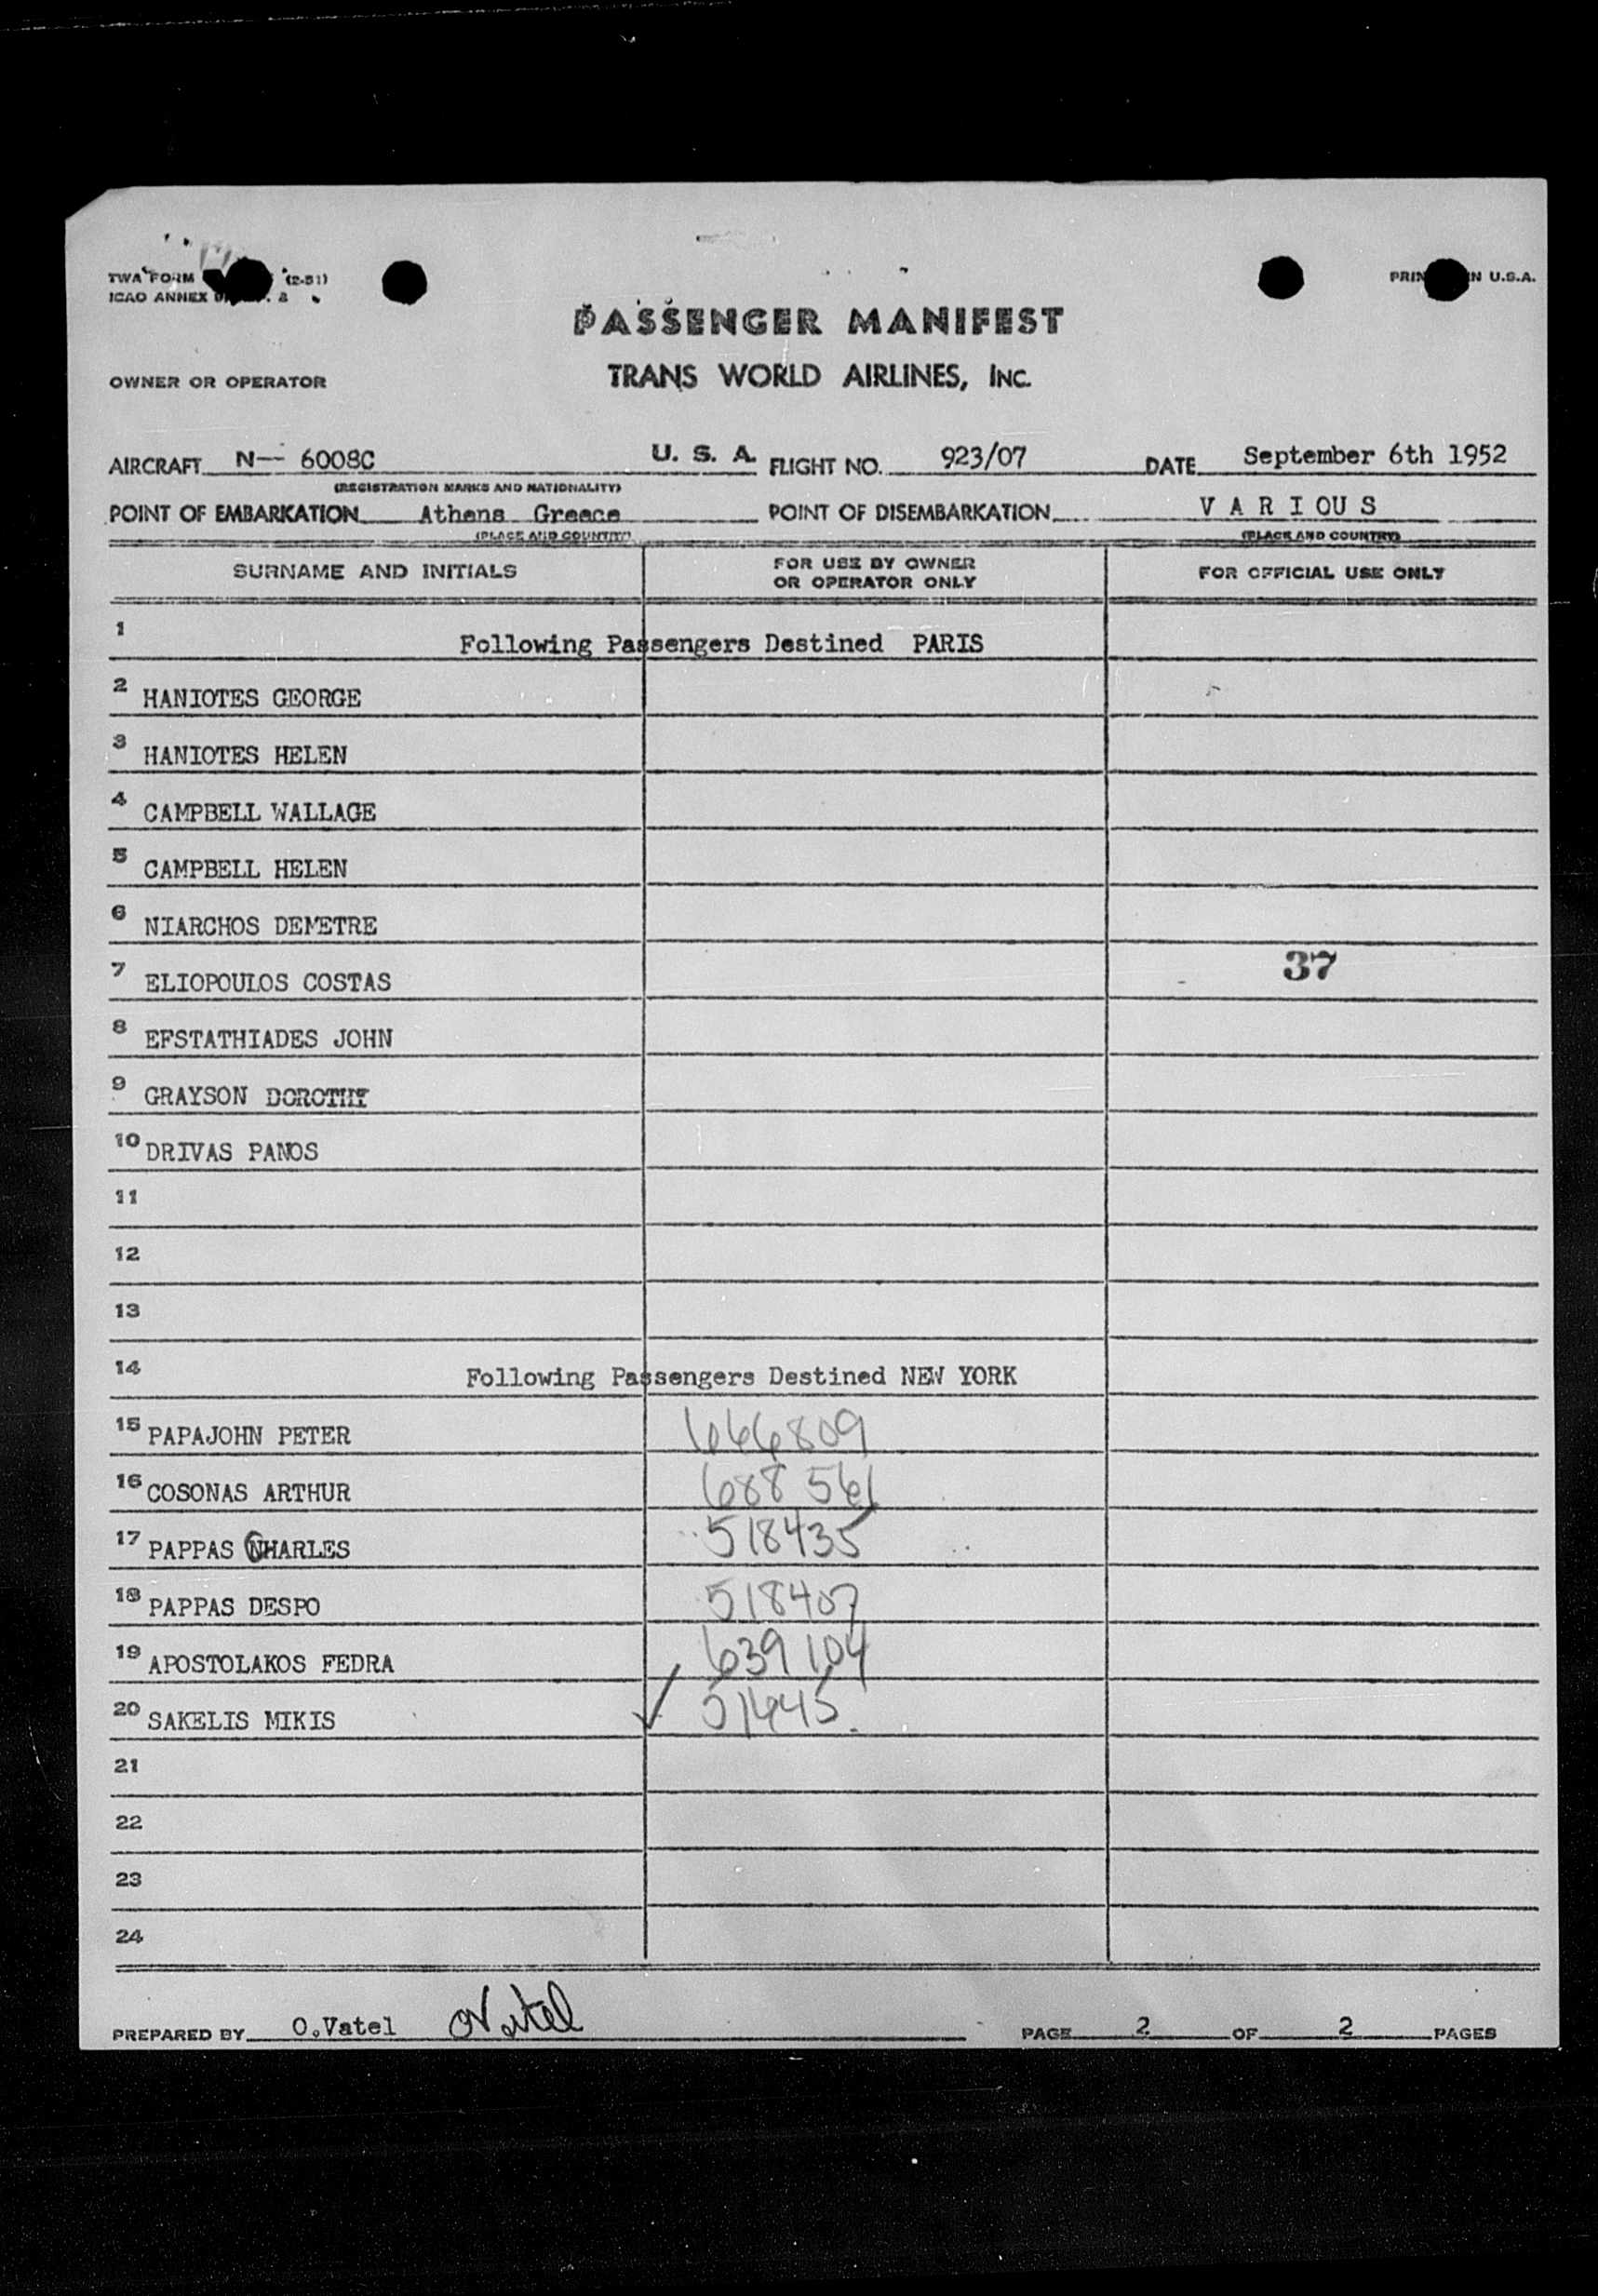 TWA FORM (2-51)
PRIN IN U.S.A.
ICAO ANNEX 2
PASSENGER MANIFEST
OWNER OR OPERATOR TRANS WORLD AIRLINES, INC.
AIRCRAFT N-- 6008C U. S. A. FLIGHT NO. 923/07 DATE September 6th 1952
(REGISTRATION MARKS AND NATIONALITY)
POINT OF EMBARKATION Athens Greece POINT OF DISEMBARKATION V A R I OU S
(PLACE AND COUNTRY) (PLACE AND COUNTRY)
SURNAME AND INITIALS FOR USE BY OWNER OR OPERATOR ONLY FOR OFFICIAL USE ONLY
1 Following Passengers Destined PARIS
2 HANIOTES GEORGE
3 HANIOTES HELEN
4 CAMPBELL WALLAGE
5 CAMPBELL HELEN
6 NIARCHOS DEMETRE
7 ELIOPOULOS COSTAS 37
8 EFSTATHIADES JOHN
9 GRAYSON DOROTHY
10 DRIVAS PANOS
11
12
13
14 Following Passengers Destined NEW YORK
15 PAPAJOHN PETER 666809
16 COSONAS ARTHUR 688561
17 PAPPAS CHARLES 518435
18 PAPPAS DESPO 518407
19 APOSTOLAKOS FEDRA 639104
20 SAKELIS MIKIS ✓
21
22
23
24
PREPARED BY O.Vatel OVatel PAGE 2 OF 2 PAGES